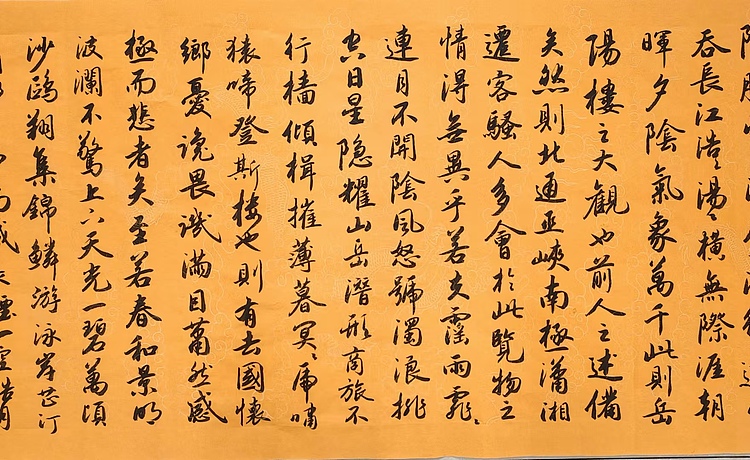 吞長江浩〻湯〻橫無際涯朝
暉夕陰氣象萬千此則岳
陽樓之大觀也前人之述備
矣然則北通巫峽南極瀟湘
遷客騷人多會於此覽物之
情得無異乎若夫霪雨霏〻
連月不開陰風怒號濁浪排
空日星隱耀山岳潛形商旅不
行檣傾楫摧薄暮冥〻虎嘯
猿啼登斯樓也則有去國懷
鄉憂讒畏譏滿目蕭然感
極而悲者矣至若春和景明
波瀾不驚上下天光一碧萬頃
沙鷗翔集錦鱗游泳岸芷汀